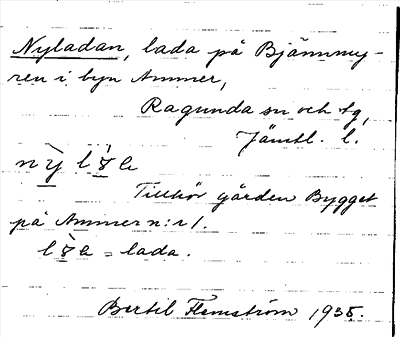 Nyladan, lada på Bjännmy-
ren i byn Ammer,
Ragunda sn och tg,
Jämtl. l.
Tillhör gården Bygget
på Ammer n:r 1.
= lada.
Bertil Flemström 1935.